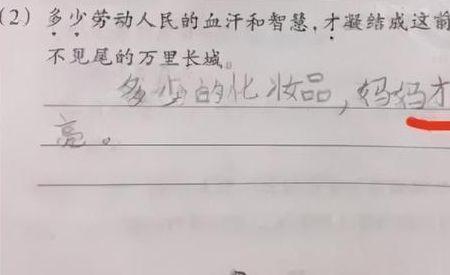 (2) 多少劳动人民的血汗和智慧,才凝结成这前
不见尾的万里长城。
多少的化妆品，妈妈才
亮。